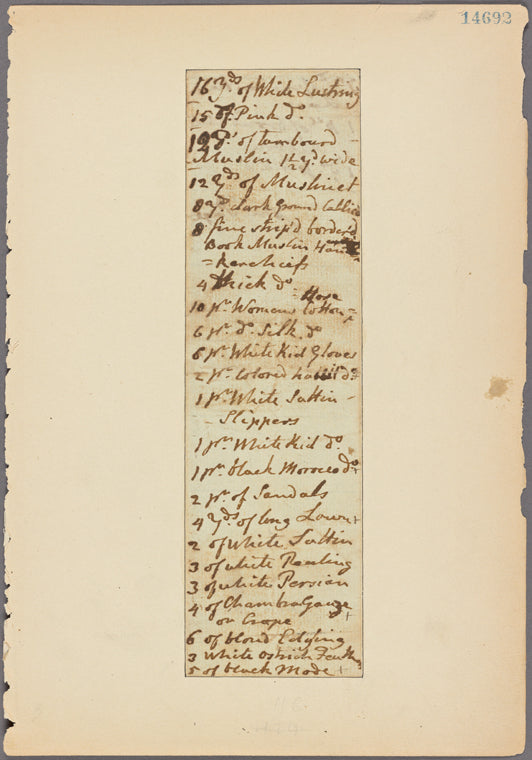 14692
16 Yds of White Lustring
15 of Pink Do
10 Yds of tambourd
Muslin 1 1/2 Yd wide
12 Yds of Muslinet
8 Yds dark ground Callico
8 fine strip'd borderd
Book Muslin Hand
=kerchiefs
4 thick do
10 pr Womens Cotton Hose
6 pr do Silk do
6 pr White Kid Gloves
2 pr Colored do
1 pr White Sattin
- Slippers
1 pr White Kid do
1 pr black Morocco do
2 pr of Sandals
4 Yds of long Lawn
2 of White Sattin
3 of white Peeling
3 of white Persian
4 of Chambra Gauze
or Crape
6 of blond Edging
3 White Ostrich Feathers
5 of black Mode